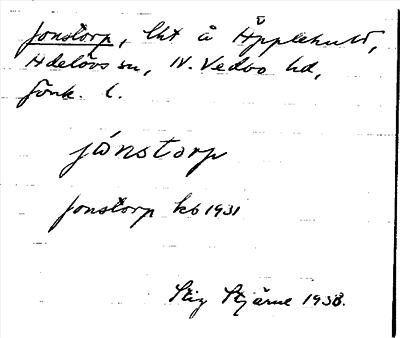 Jonstorp, lht å Äpplehult,
Adelövs sn, N. Vedbo hd,
Jönk. l.
jónstorp
Jonstorp kb 1931
Stig Stjärne 1938.